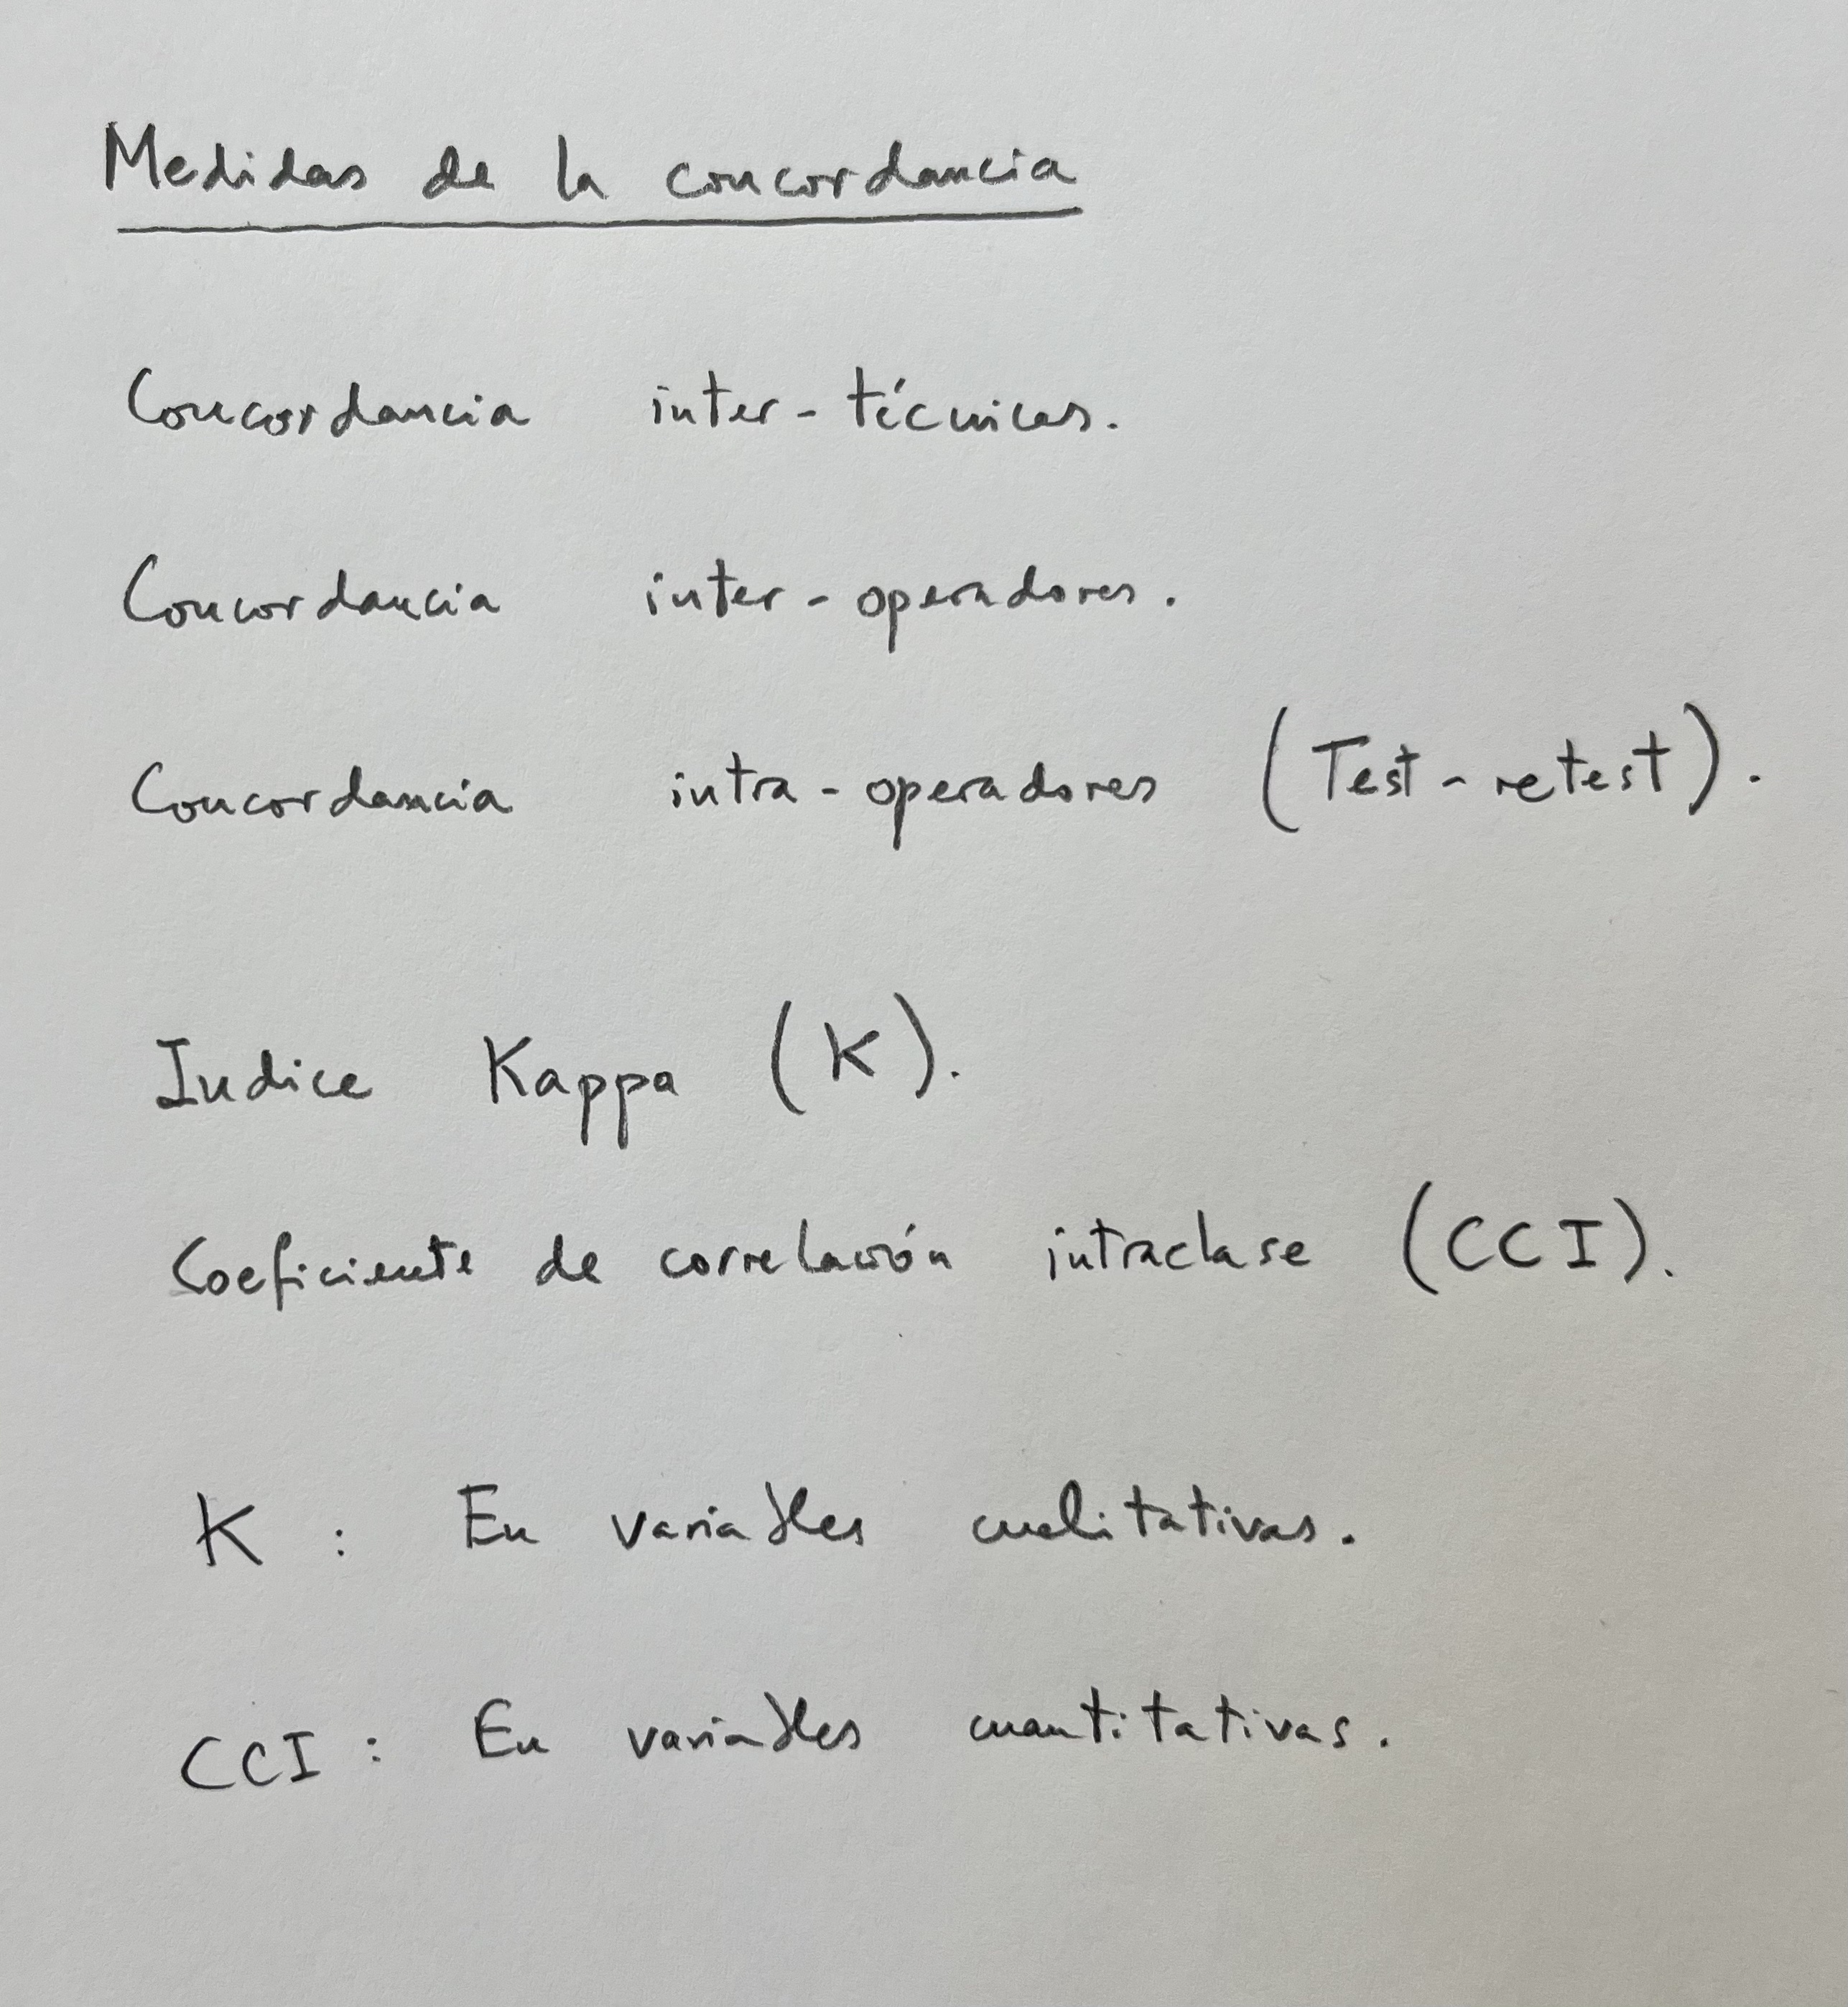 Medidas de la concordancia
Concordancia inter-técnicas.
Concordancia inter-operadores.
Concordancia intra-operadores (Test-retest).
Indice Kappa (K).
Coeficiente de correlación intraclase (CCI).
K : En variables cualitativas.
CCI : En variables cuantitativas.